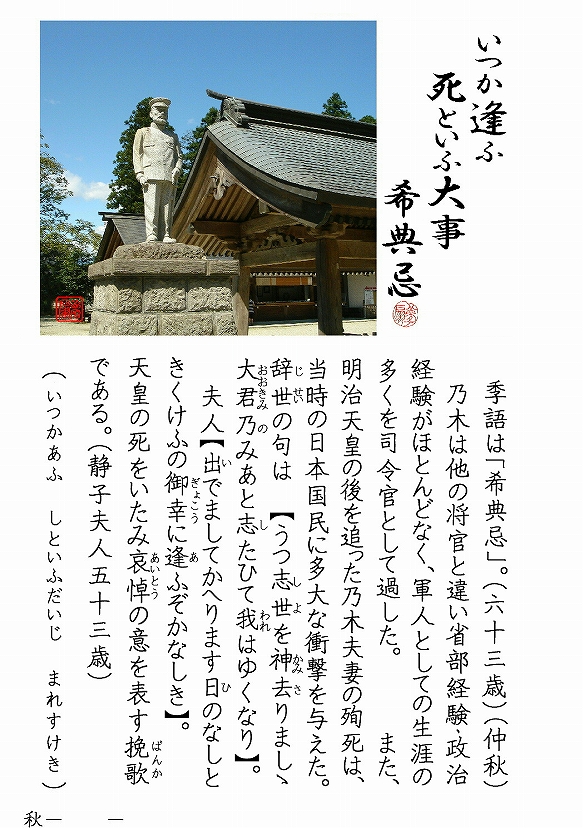 いつか逢ふ
死といふ大事
希典忌
季語は「希典忌」。(六十三歳)(仲秋)
乃木は他の将官と違い省部経験、政治
経験がほとんどなく、軍人としての生涯の
多くを司令官として過した。　また、
明治天皇の後を追った乃木夫妻の殉死は、
当時の日本国民に多大な衝撃を与えた。
辞世の句は　【うつ志世を神去りましゝ
大君乃みあと志たひて我はゆくなり】。
夫人【出でましてかへります日のなしと
きくけふの御幸に逢ふぞかなしき】。
天皇の死をいたみ哀悼の意を表す挽歌
である。(静子夫人五十三歳)
(いつかあふ　しといふだいじ　まれすけき)
秋―　―